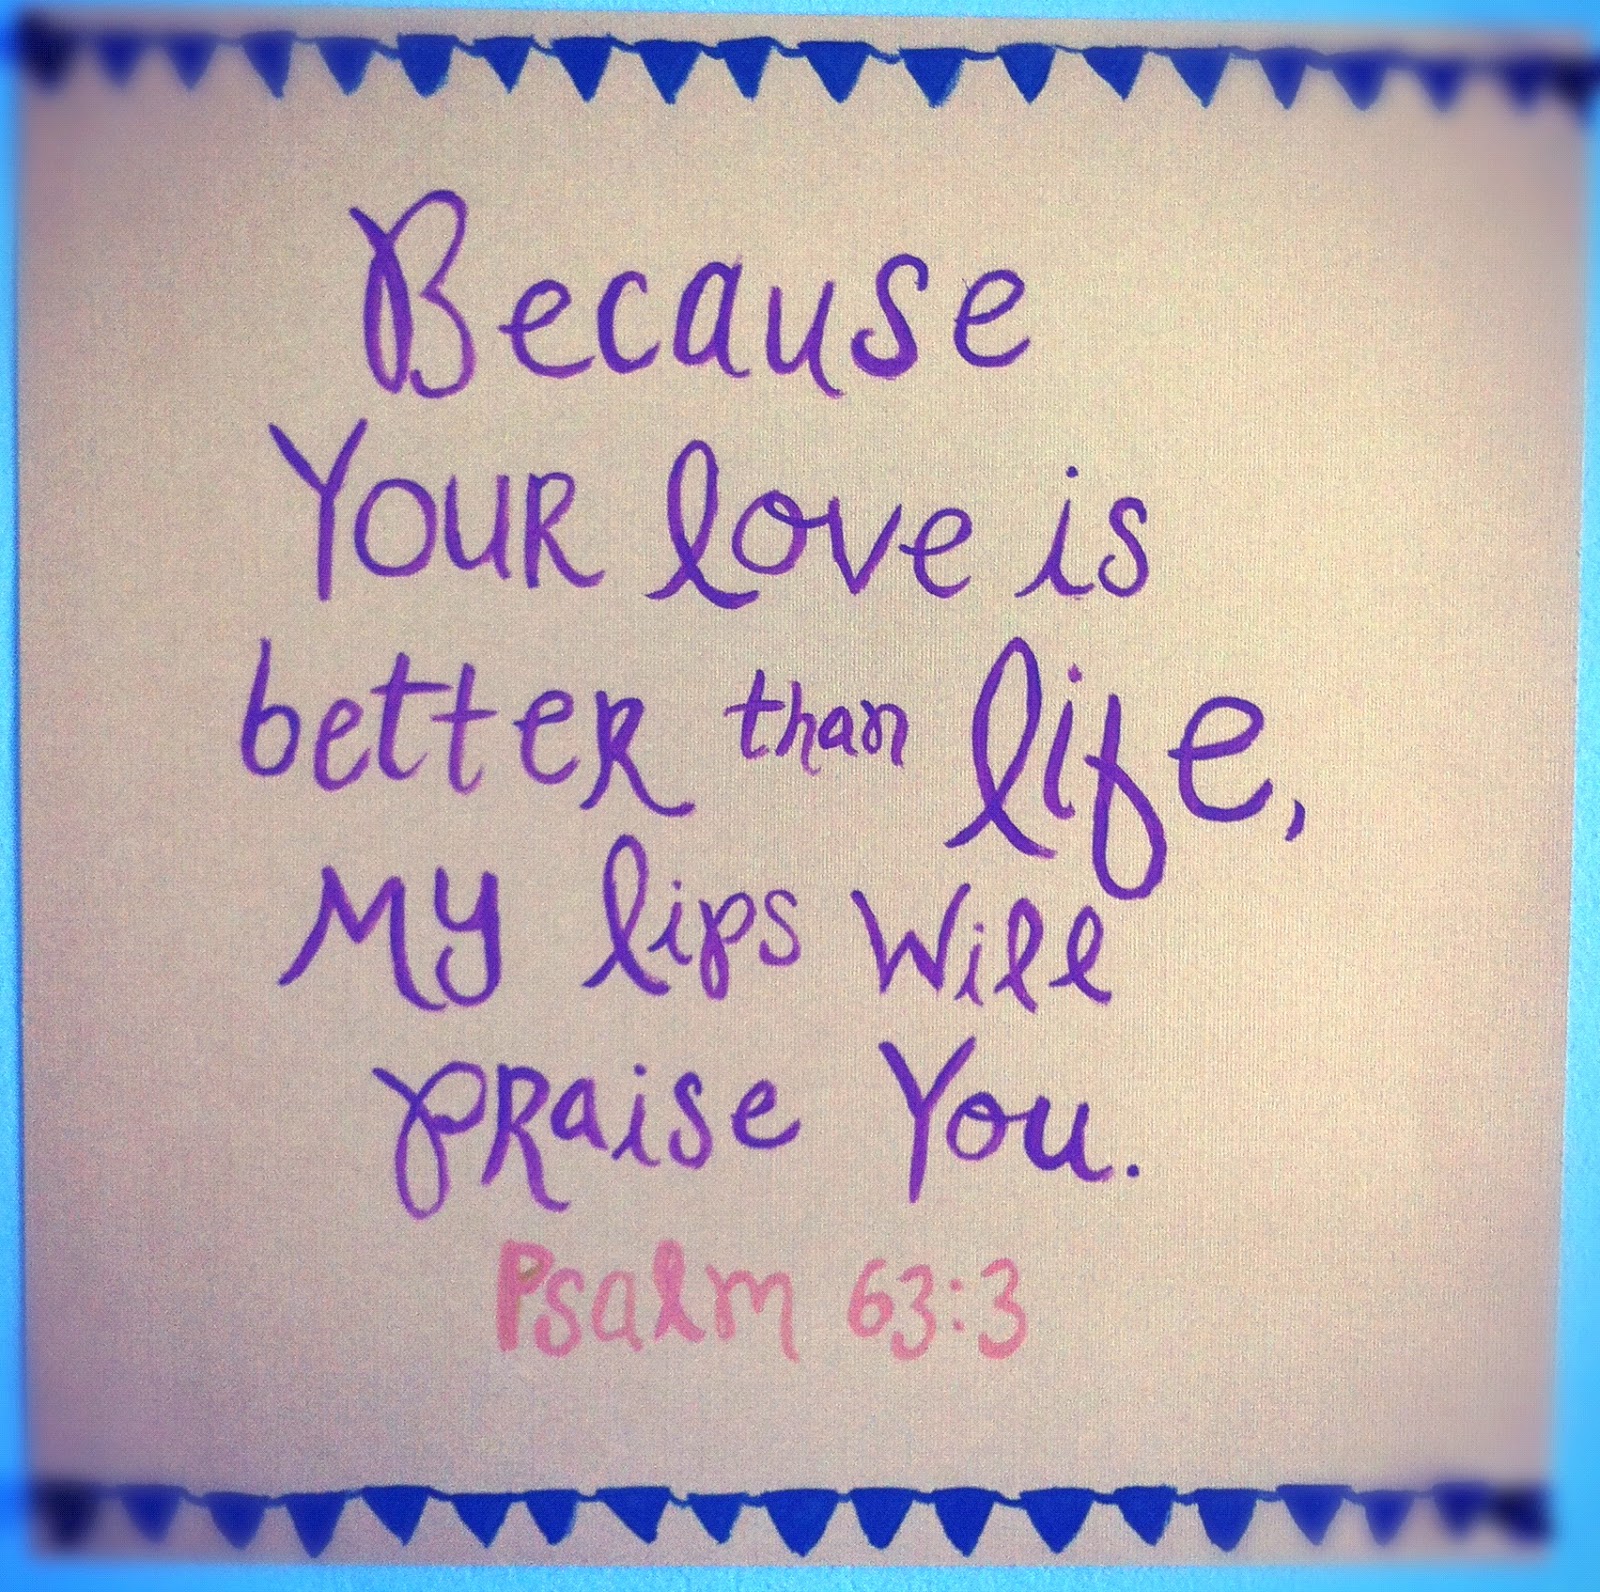 Because
YOUR love is
better than life,
My lips will
praise You.
Psalm 63:3